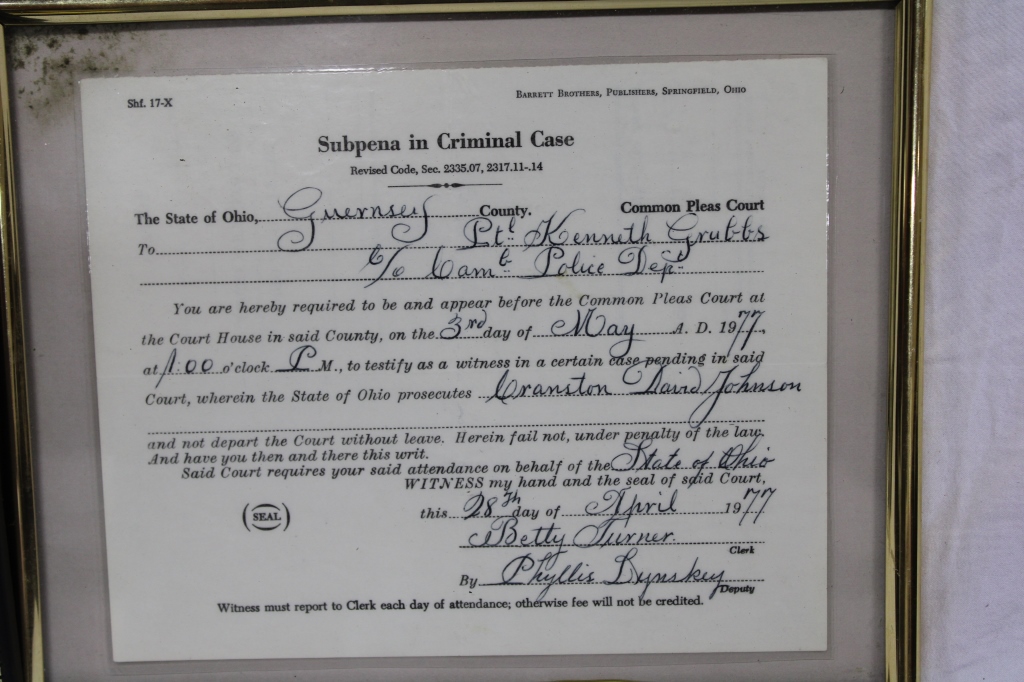 Shf. 17-X
BARRETT BROTHERS, PUBLISHERS, SPRINGFIELD, OHIO
Subpena in Criminal Case
Revised Code, Sec. 2335.07, 2317.11-.14
The State of Ohio, Guernsey County. Common Pleas Court
To Ptl. Kenneth Grubbs
c/o Camb. Police Dept.
You are hereby required to be and appear before the Common Pleas Court at
the Court House in said County, on the 3rd day of May A. D. 1977,
at 1:00 o'clock P M., to testify as a witness in a certain case pending in said
Court, wherein the State of Ohio prosecutes Cranston David Johnson
and not depart the Court without leave. Herein fail not, under penalty of the law.
And have you then and there this writ.
Said Court requires your said attendance on behalf of the State of Ohio
WITNESS my hand and the seal of said Court,
this 28th day of April 1977
(SEAL)
Betty Turner
Clerk
By Phyllis Dynskey
Deputy
Witness must report to Clerk each day of attendance; otherwise fee will not be credited.